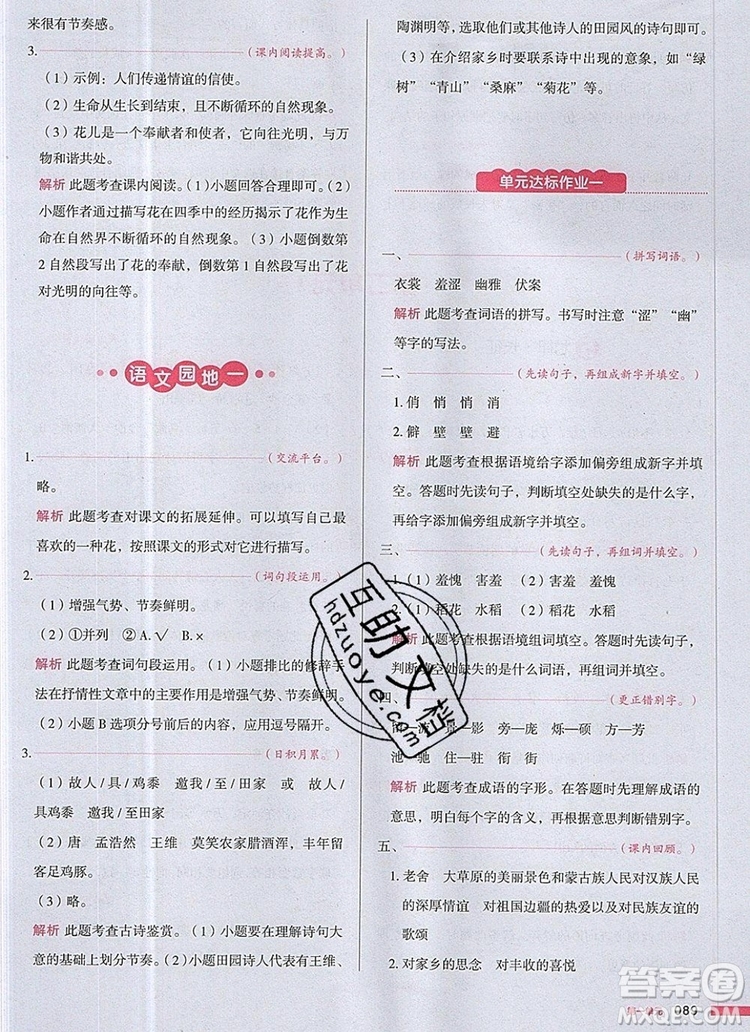 来很有节奏感。
3.(课内阅读提高。)
(1)示例：人们传递情谊的信使。
(2)生命从生长到结束，且不断循环的自然现象。
(3)花儿是一个奉献者和使者，它向往光明，与万
物和谐共处。
解析 此题考查课内阅读。(1)小题回答合理即可。(2)
小题作者通过描写花在四季中的经历揭示了花的生
命在自然界不断循环的自然现象。(3)小题倒数第
2 自然段写出了花的奉献，倒数第 1 自然段写出了花
对光明的向往等。
语文园地一
1.(交流平台。)
略。
解析 此题考查对课文的拓展延伸。可以填写自己最
喜欢的一种花，按照课文的形式对它进行描写。
2.(词句段运用。)
(1)增强气势、节奏鲜明。
(2)①并列 ②A.√ B.×
解析 此题考查词句段运用。(1)小题排比的修辞手
法在抒情性文章中的主要作用是增强气势、节奏鲜明。
(2)小题 B 选项分号前后的内容，应用逗号隔开。
3.(日积月累。)
(1)故人/具/鸡黍 邀我/至/田家 或 故人/
具鸡黍 邀我/至田家
(2)唐 孟浩然 王维 莫笑农家腊酒浑，丰年留
客足鸡豚。
(3)略。
解析 此题考查古诗鉴赏。(1)小题要在理解诗句大
意的基础上划分节奏。(2)小题田园诗人代表有王维、
陶渊明等，也可以写出其他诗人的田园风的诗句即可。
(3)在介绍家乡时要联系诗中出现的意象，如“绿
树”“青山”“桑麻”“菊花”等。
单元达标作业一
一、(拼写词语。)
衣裳 羞涩 幽雅 伏案
解析 此题考查词语的拼写。书写时注意“涩”“幽”
等字的写法。
二、(先读句子，再组成新字并填空。)
1. 俏 悄 悄 消
2. 僻 壁 壁 避
解析 此题考查根据语境给字添加偏旁组成新字并填
空。答题时先读句子，判断填空处缺失的是什么字，
再给字添加偏旁组成新字并填空。
三、(先读句子，再组成新字并填空。)
1.(1)羞愧 害羞 (2)害羞 羞愧
2.(1)稻花 水稻 (2)稻花 水稻
解析 此题考查根据语境组词填空。答题时先读句子，
判断填空处缺失的是什么词语，再进行填空。
四、(更正错别字。)
流 景—影 旁—庞 烁—硕 芳—方
池—驰 住—驻 衔—街
解析 此题考查成语的字形。在答题时先理解成语的
意思，明白每个字的含义，从而判断出错别字。
五、(课内回顾。)
1. 老舍 大草原的美丽景色和蒙古族人民对汉族人民
的深厚情谊 对祖国边疆的热爱和对民族友谊的
歌颂
2. 对家乡的思念 对丰收的喜悦
089
互助文档
hdzuoye.com
答案圈
MXQE.COM